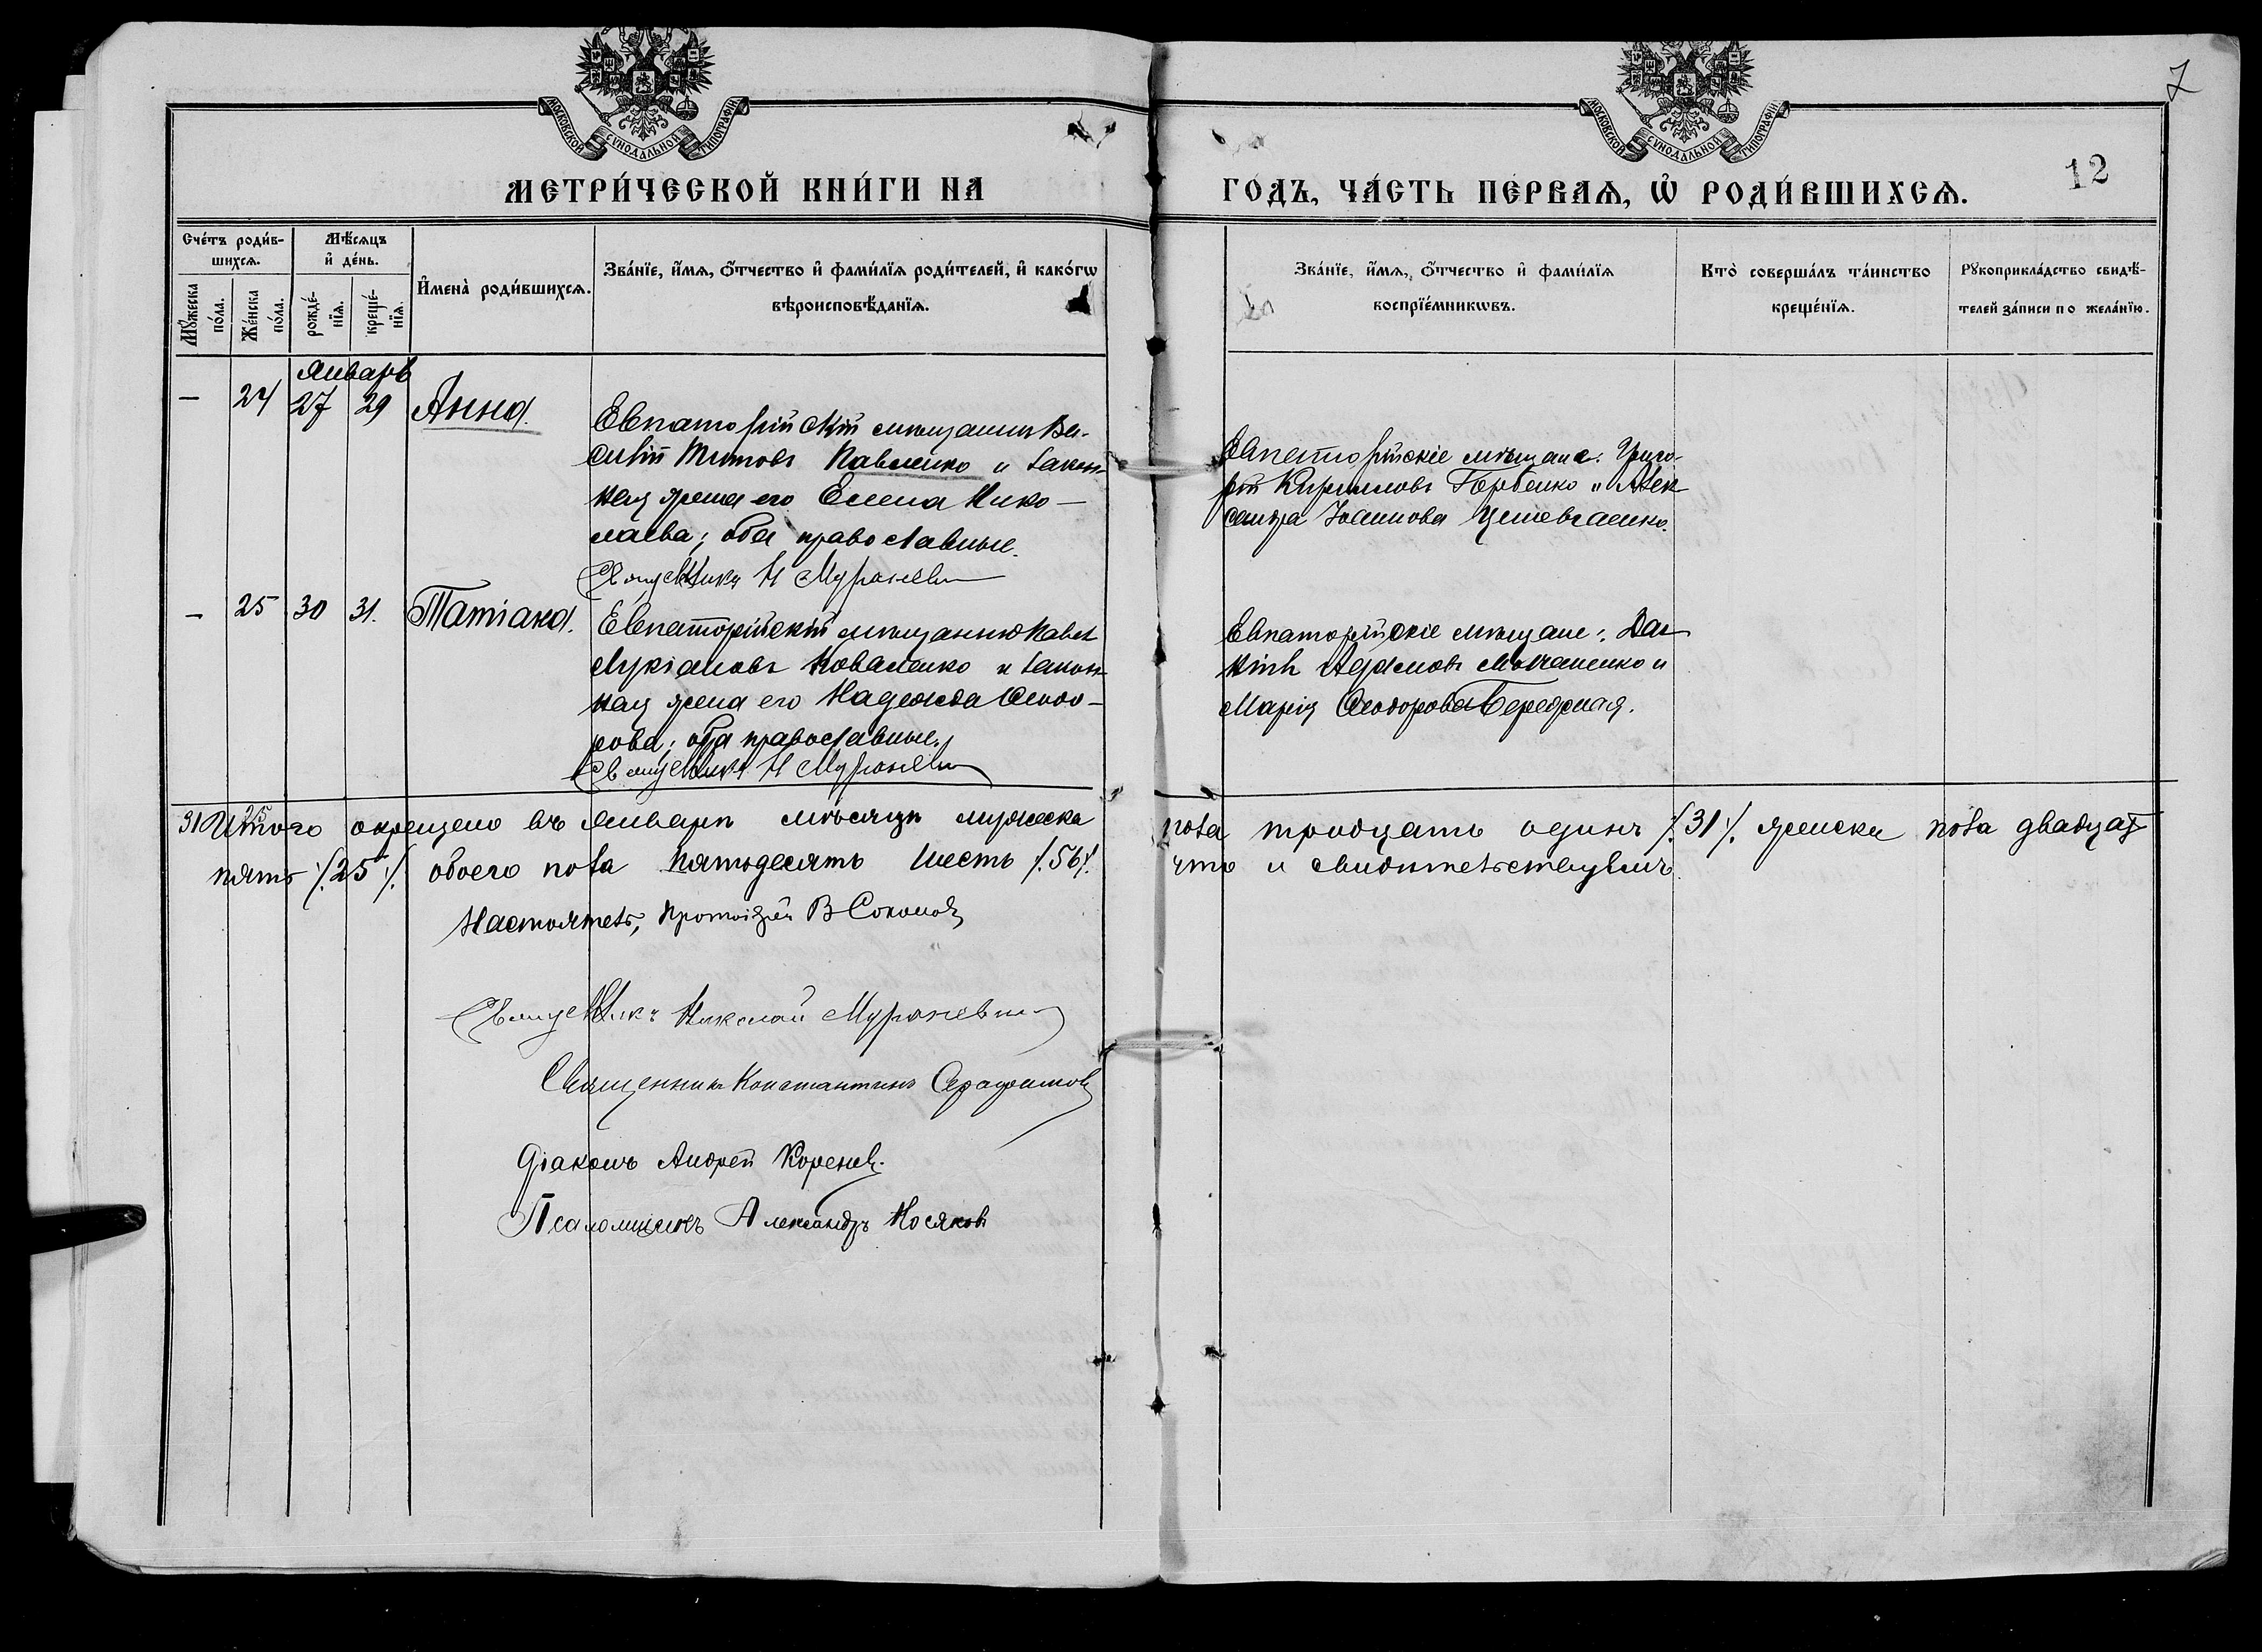 7
12
МОСКОВСКОЙ СѴНОДАЛЬНОЙ ТИПОГРАФІИ
МОСКОВСКОЙ СѴНОДАЛЬНОЙ ТИПОГРАФІИ
МЕТРИ́ЧЕСКОЙ КНИ́ГИ НА ГОДЪ, ЧА́СТЬ ПЕ́РВАѦ, Ѿ РОДИ́ВШИХСѦ.
Сче́тъ роди́в-
шихсѧ.
Мѣ́сѧцъ
и҆ де́нь.
Мꙋ́жеска по́ла.
Же́нска по́ла.
рожде́-
нїѧ.
креще́-
нїѧ.
И҆мена̀ роди́вшихсѧ.
Зва́нїе, и҆́мѧ, ѻ҆́тчество и҆ фами́лїѧ роди́телей, и҆ како́гѡ
вѣроисповѣ́данїѧ.
Зва́нїе, и҆́мѧ, ѻ҆́тчество и҆ фами́лїѧ
воспрїе́мникѡвъ.
Кто̀ соверша́лъ та́инство
креще́нїѧ.
Рꙋкоприкла́дство свидѣ́-
телей за́писи по жела́нїю.
Январь
— 24 27 29 Анна.
Евпаторійскій мѣщанинъ Ва-
силій Титовъ Павленко и закон-
ная жена его Елена Нико-
лаева; оба православные.
Священникъ Н Мураневи
Евпаторійскіе мѣщане: Григо-
рій Кирилловъ Горбенко и Алек
сандра Іоаннова
— 25 30 31. Татіана.
Евпаторійскій мѣщанинъ Павел
Лукіановъ Коваленко и закон-
ная жена его Надежда Ѳеодо-
рова; оба православные.
Священникъ Н Мураневи
Евпаторійскіе мѣщане:
Адамовъ и
Марія Ѳеодорова Бережная.
31 25
Итого окрещено въ Январѣ мѣсяцѣ мужеска пола тридцать одинъ /.31/. женска пола двадцать
пять /.25/. обоего пола пятьдесятъ шесть /.56/. что и свидѣтельствуемъ.
Настоятель, Протоіерей В Соколовъ
Священникъ Николай Мураневи
Священникъ Константинъ Серафимовъ
Діаконъ Андрей Кореневъ.
Псаломщикъ Александръ Носяковъ